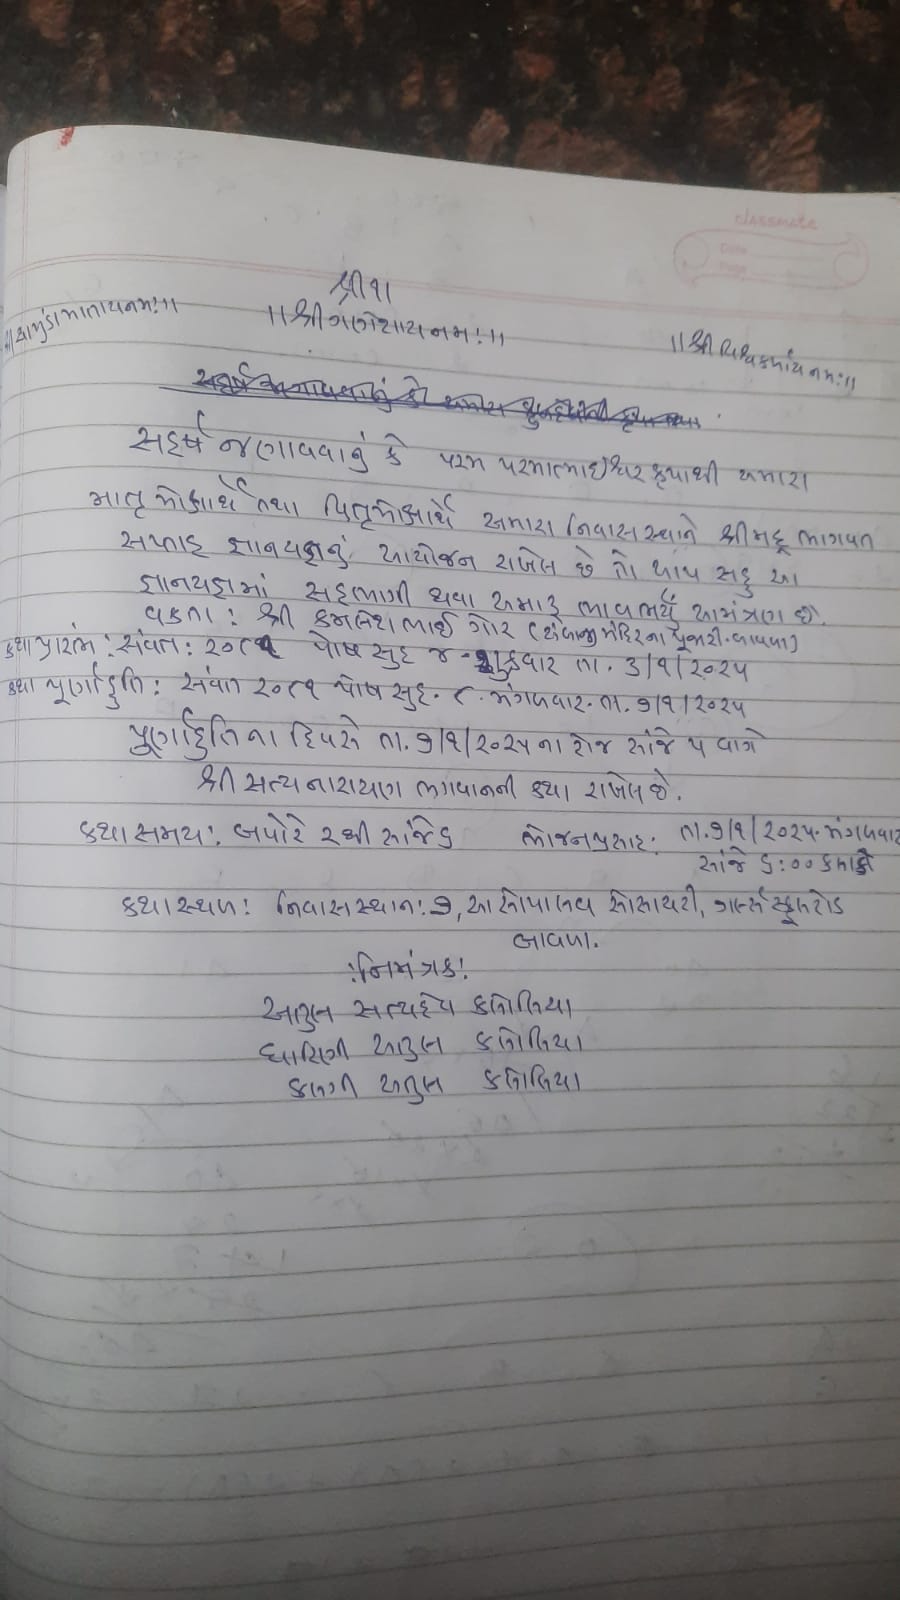 classmate
Date
Page
શ્રી૧ા
॥શ્રી ચામુંડામાતાયનમઃ॥
॥શ્રી ગણેશાય નમઃ॥
॥શ્રી વિશ્વકર્માય નમઃ॥
સહર્ષ જણાવવાનું કે પરમ પરમાત્મા ઈશ્વર કૃપાથી અમારા
માતૃ મોક્ષાર્થે તથા પિતૃમોક્ષાર્થે અમારા નિવાસ સ્થાને શ્રીમદ્ ભાગવત
સપ્તાહ જ્ઞાનયજ્ઞનું આયોજન રાખેલ છે તો આપ સહુ આ
જ્ઞાનયજ્ઞમાં સહભાગી થવા અમારૂ ભાવભર્યું આમંત્રણ છે.
વકતા : શ્રી કમલેશભાઈ ગોર (અંબાજી મંદિરના પૂજારી-બાવળા)
કથા પ્રારંભ : સંવત : ૨૦૮૧ પોષ સુદ ૪ - શુક્રવાર તા. ૩/૧/૨૦૨૫
કથા પૂર્ણાહુતિ : સંવત ૨૦૮૧ પોષ સુદ. ૮. મંગળવાર. તા. ૭/૧/૨૦૨૫
પુર્ણાહુતિ ના દિવસે તા. ૭/૧/૨૦૨૫ ના રોજ સાંજે ૫ વાગે
શ્રી સત્યનારાયણ ભગવાનની કથા રાખેલ છે.
કથા સમય : બપોરે ૨ થી સાંજે ૬ ભોજનપ્રસાદ : તા. ૭/૧/૨૦૨૫. મંગળવાર
સાંજે ૬:૦૦ કલાકે
કથા સ્થળ : નિવાસ સ્થાન : ૭, આસોપાલવ સોસાયટી, ગર્લ્સ સ્કૂલ રોડ
બાવળા.
:નિમંત્રક:
અતુલ સત્યદેવ
અતુલ
અતુલ